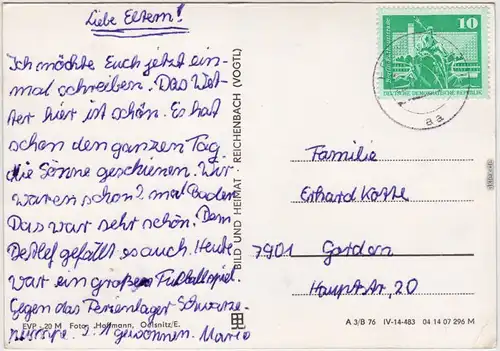 Liebe Eltern!
Ich möchte Euch jetzt ein-
mal schreiben. Das Wet-
ter hier ist schön. Es hat
schon den ganzen Tag
die Sonne geschienen. Wir
waren schon 2 mal Baden
Das war sehr schön. Dem
Detlef gefällt es auch. Heute
war ein großes Fußballspiel.
Gegen das Ferienlager Schwarze-
3:1 gewonnen. Mario
EVP -20 M Foto: Hoffmann, Oelsnitz/E.
BILD UND HEIMAT · REICHENBACH (VOGTL)
10
DEUTSCHE DEMOKRATISCHE REPUBLIK
aa
Familie
Erhard Kotte
7901 Gorden
Hauptstr, 20
A 3/B 76 IV-14-483 04 14 07 296 M